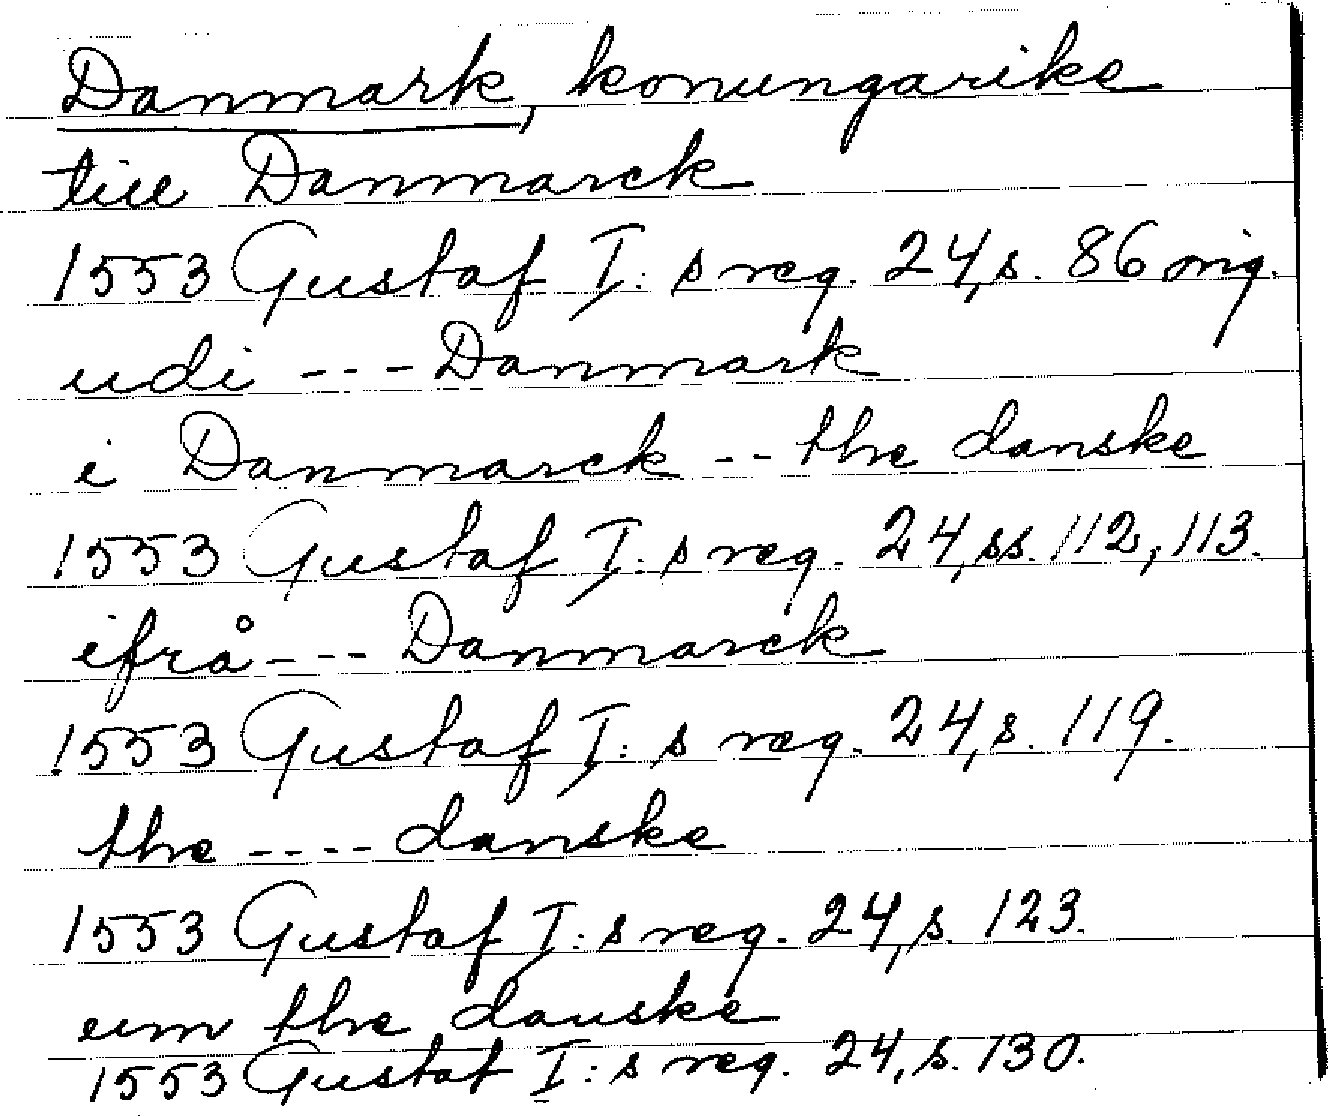 Danmark, konungarike
till Danmarck
1553 Gustaf I: s reg. 24, s. 86 orig.
udi --- Danmark
i Danmarck -- the danske
1553 Gustaf I: s reg. 24, ss. 112, 113.
ifrå --- Danmarck
1553 Gustaf I: s reg. 24, s. 119.
the ---- danske
1553 Gustaf I: s reg. 24, s. 123.
um the danske
1553 Gustaf I: s reg. 24, s. 130.